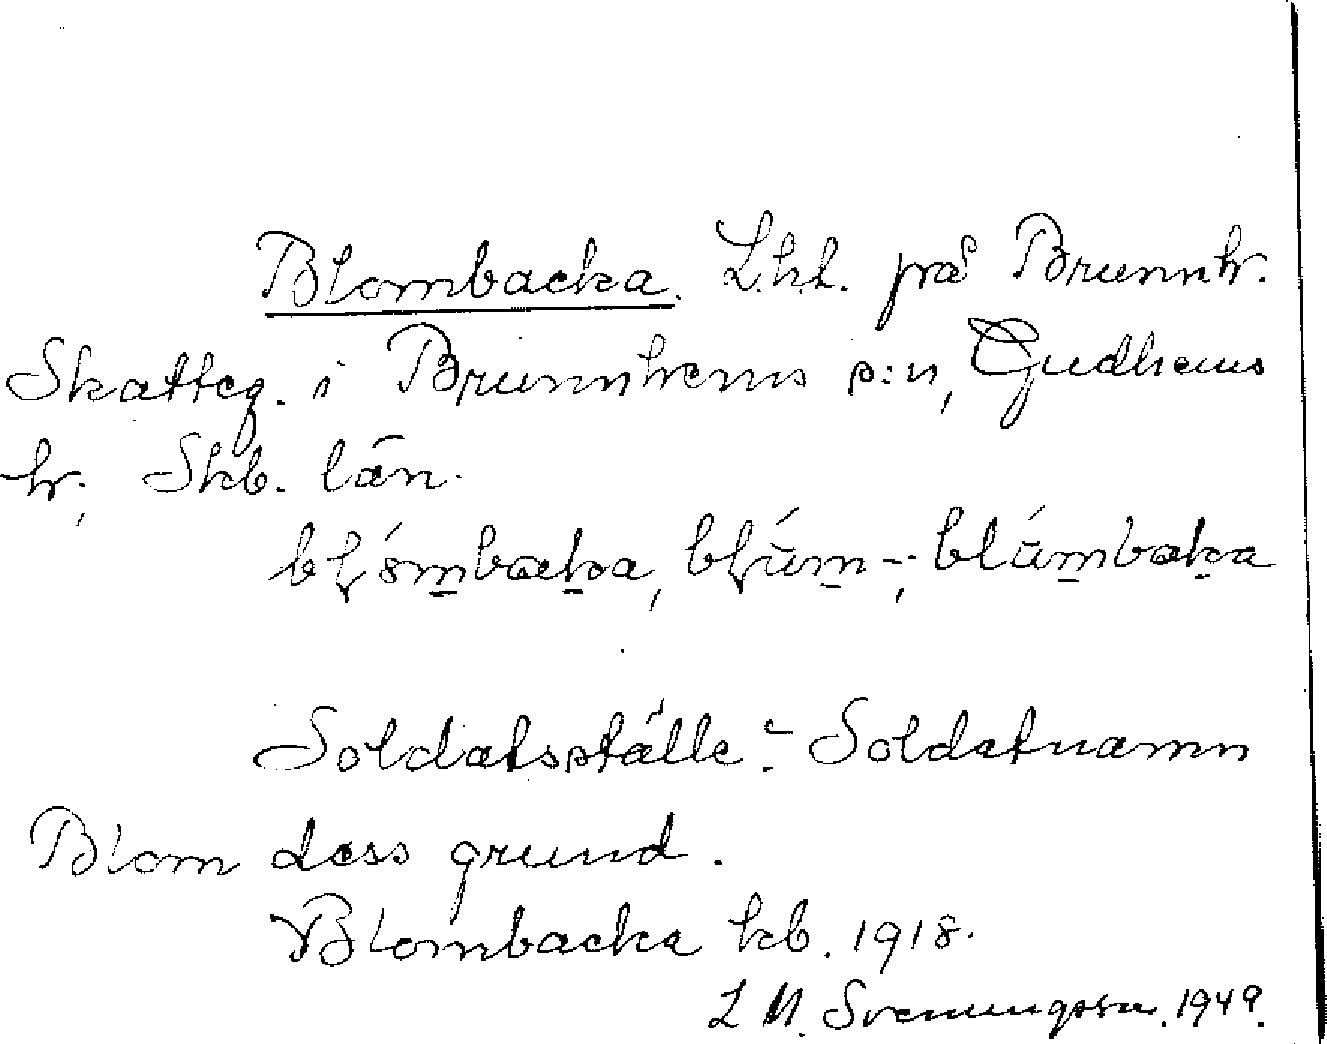 Blombacka. Lht. på Brunnh.
Skatteg. i Brunnhems s:n, Gudhems
hr, Skb. län.
Soldatställe. Soldatnamn
Blom dess grund.
Blombacka kb. 1918.
L M. Svenungsson. 1949.